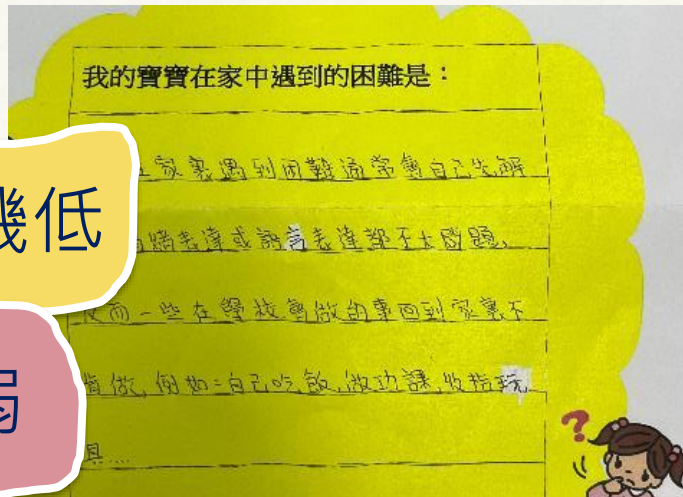 我的寶寶在家中遇到的困難是：
家裏遇到困難通常會自己先解
機低
緒表達或語言表達都不太問題，
而一些在學校會做的事回到家裏不
弱
肯做，例如：自己吃飯，做功課，收拾玩
具……
?